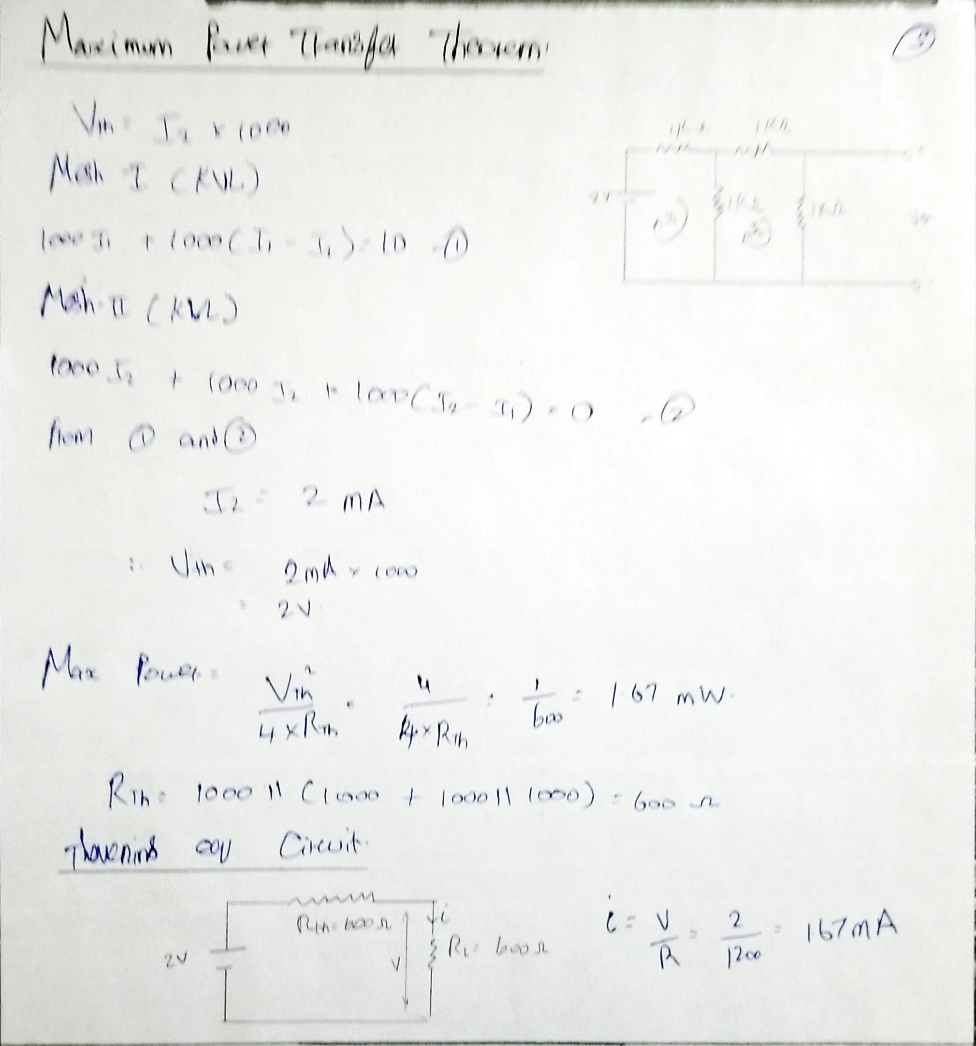 Maximum Power Transfer Theorem
Vth = I2 x 1000
1KΩ 1KΩ
Mesh I (KVL)
2V 1KΩ 1KΩ
1000 I1 + 1000 (I1 - I2) = 10 - ①
Mesh II (KVL)
1000 I2 + 1000 I2 + 1000 (I2 - I1) = 0 - ②
from ① and ②
I2 = 2 mA
∴ Vth = 2mA x 1000
= 2V
Max Power = Vth² / 4 x Rth = 4 / 4 x Rth = 1 / 600 = 1.67 mW.
Rth = 1000 || (1000 + 1000 || 1000) = 600 Ω
Thevenins eqv Circuit.
Rth = 600 Ω i
2V V RL = 600 Ω
i = V / R = 2 / 1200 = 1.67mA